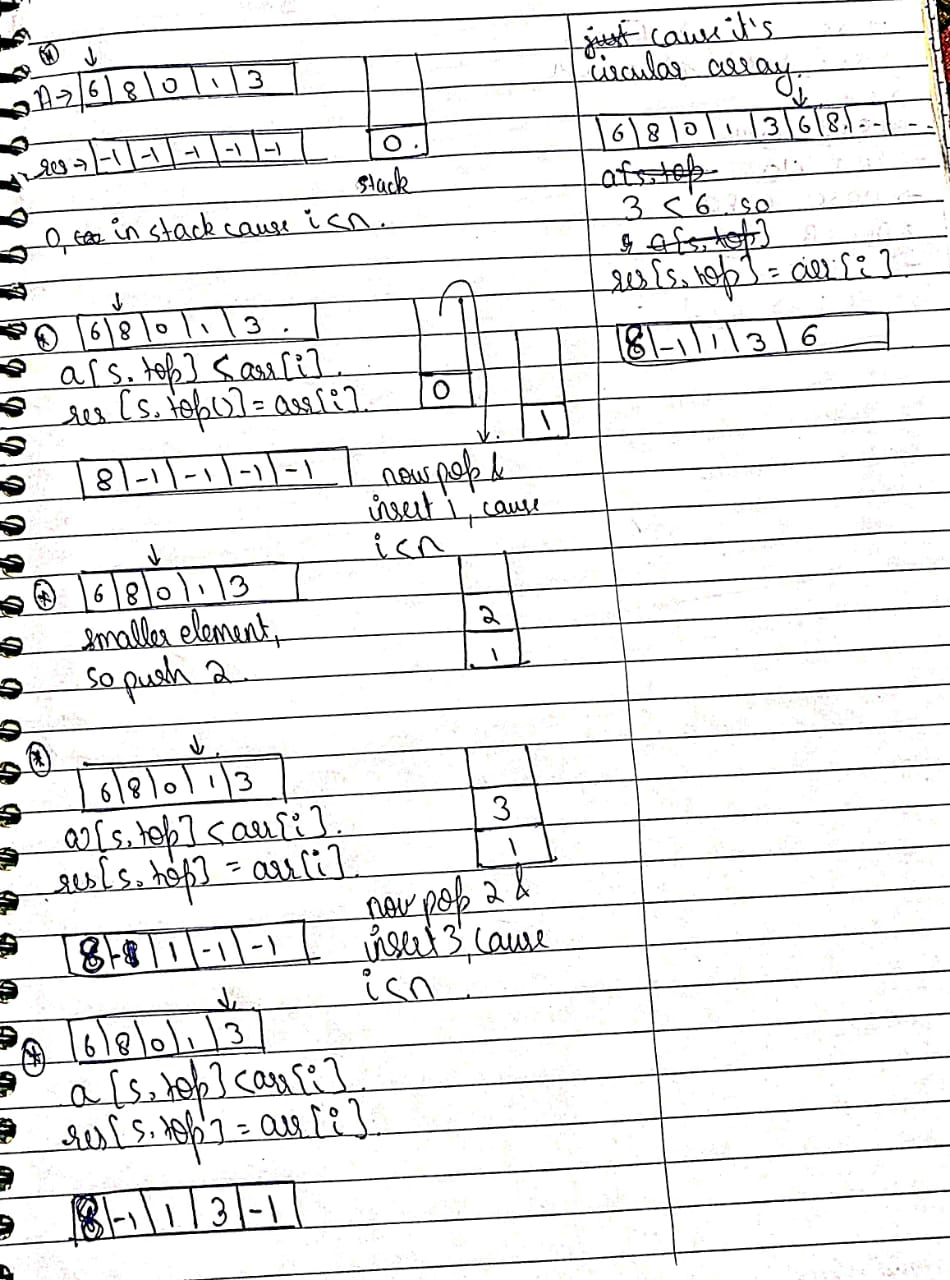 A → 6 | 8 | 0 | 1 | 3
res → -1 | -1 | -1 | -1 | -1
0.
stack
0, in stack cause i<n.
6 | 8 | 0 | 1 | 3 .
a[s.top] < arr[i].
res [s.top()] = arr[i].
0
1
8 | -1 | -1 | -1 | -1
now pop &
insert 1, cause
i<n
6 | 8 | 0 | 1 | 3
smaller element,
so push 2.
2
1
6 | 8 | 0 | 1 | 3
a[s.top] < arr[i].
res[s.top] = arr[i].
3
1
now pop 2 &
insert 3, cause
i<n .
8 | -1 | 1 | -1 | -1
6 | 8 | 0 | 1 | 3
a [s.top] < arr[i].
res[s.top] = arr[i].
8 | -1 | 1 | 3 | -1
just cause it's
circular array.
6 | 8 | 0 | 1 | 3 | 6 | 8 . - - - -
a[s.top
3 < 6. so
a[s.top]
res[s.top] = arr[i].
8 | -1 | 1 | 3 | 6